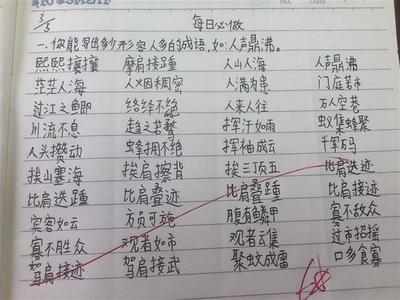 3/5 每日必做
一、你能写出多少形容人多的成语,如:人声鼎沸。
熙熙攘攘 摩肩接踵 人山人海 人声鼎沸
茫茫人海 人烟稠密 人满为患 门庭若市
过江之鱼即 络绎不绝 人来人往 万人空巷
川流不息 趋之若鹜 挥汗如雨 蚁集蜂聚
人头攒动 蜂拥不绝 挥袖成云 千军万码
挨山塞海 挨肩擦背 挨三顶五 比肩迭迹
比肩迭踵 比肩叠迹 比肩叠踵 比肩接迹
宾客如云 方员可施 腹有鳞甲 寡不敌众
寡不胜众 观者如市 观者云集 过市招摇
驾肩接迹 驾肩接武 聚蚊成雷 口多食寡